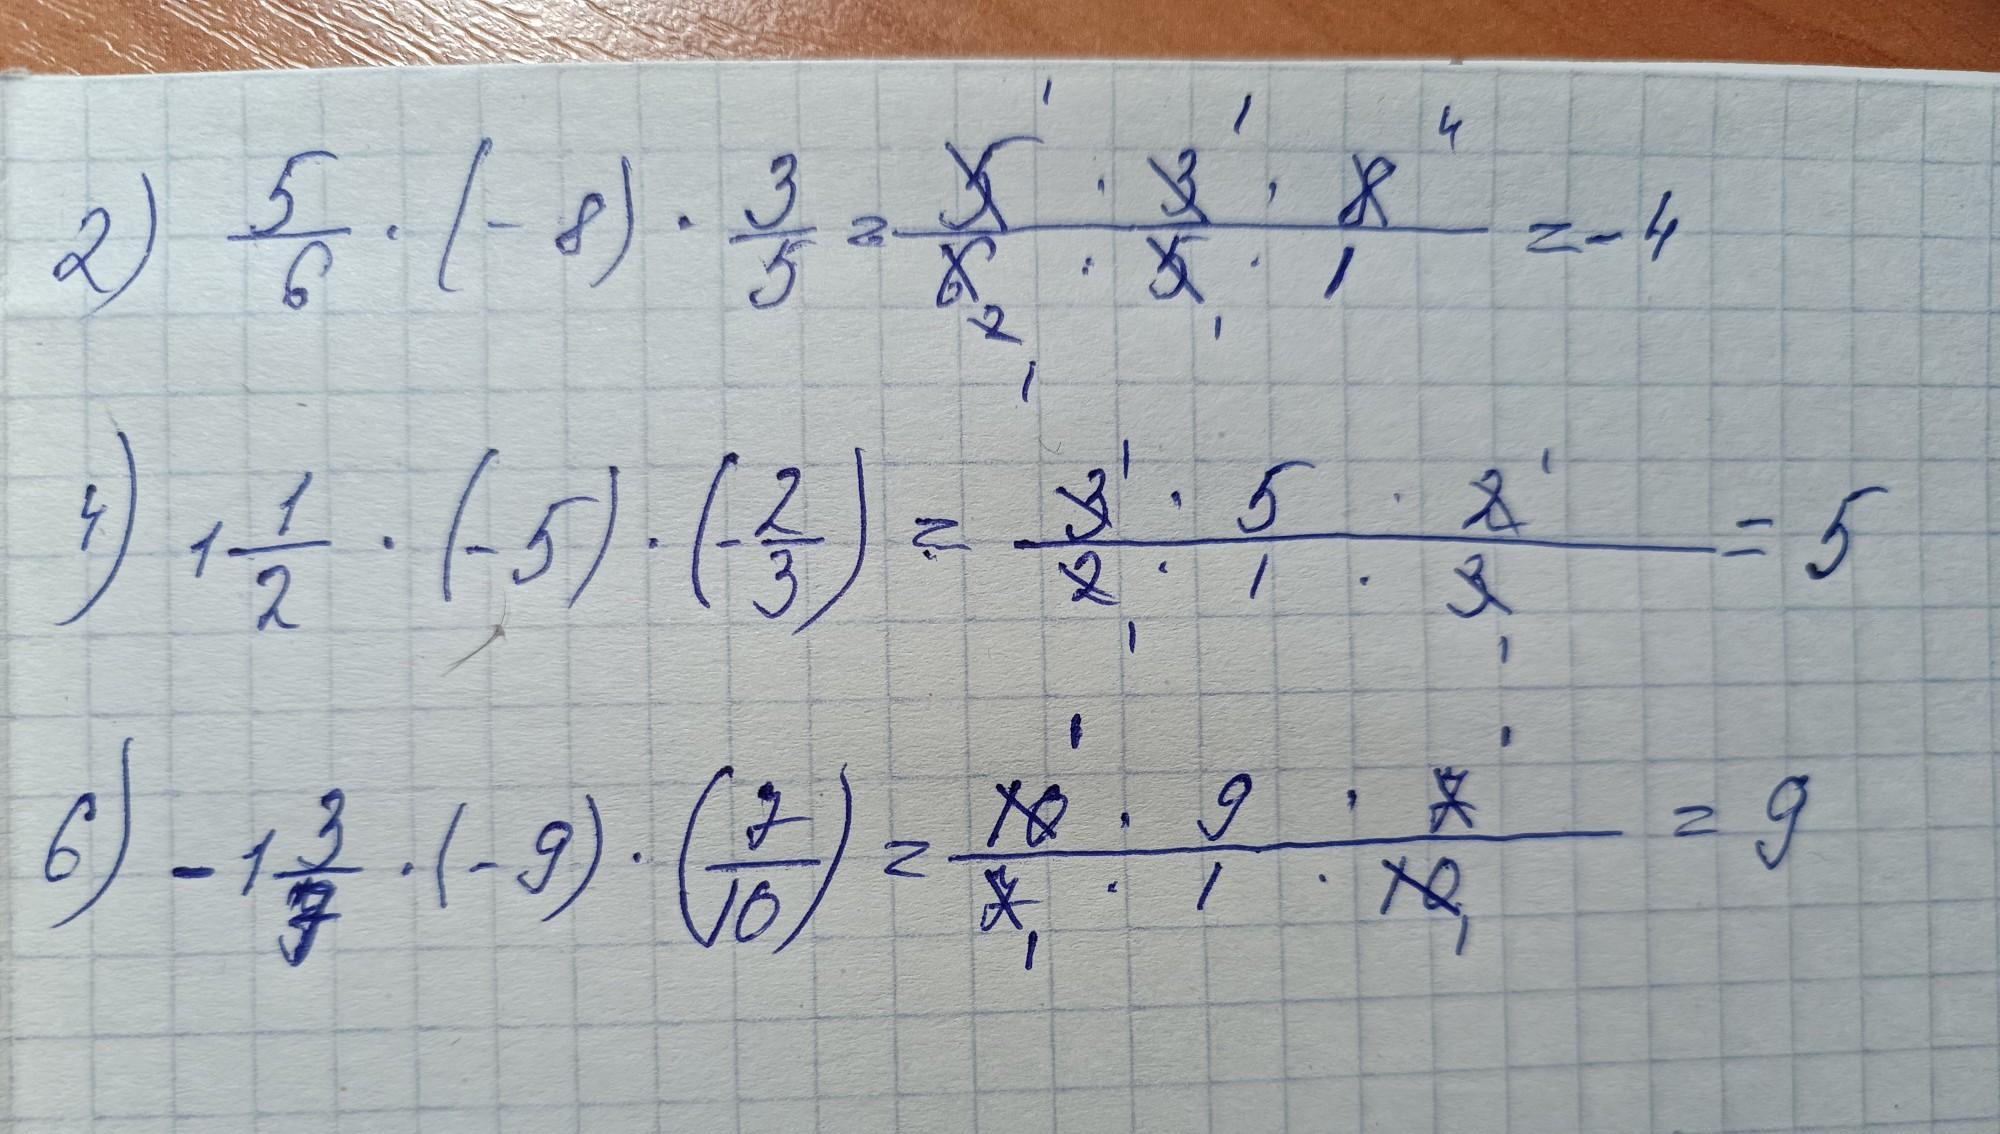 2) 5/6 · (-8) · 3/5 = 5 · 3 · 8 / 6 · 5 · 1 = -4
4) 1 1/2 · (-5) · (-2/3) = 3 · 5 · 2 / 2 · 1 · 3 = 5
6) -1 3/7 · (-9) · (7/10) = 10 · 9 · 7 / 7 · 1 · 10 = 9